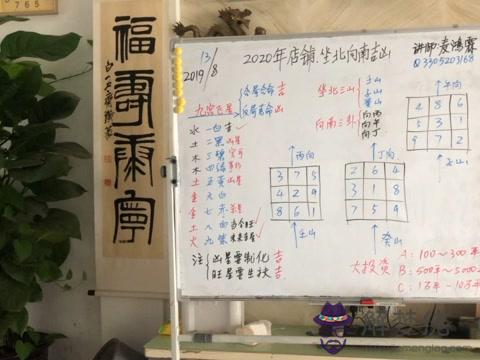 福
壽
康
寧
13/8
2019
2020年店铺坐北向南吉凶
讲师:麦鸿霖
Q3305203168
九宫飞星
合局合命 吉
反局克命 凶
坐北三山
子山
壬山
癸山
向南三卦
向丙
向午
向丁
水 一白吉✓
土 二黑凶星
木 三碧官司
木 四绿
土 五黄凶星
金 六白
金 七赤
土 八白
火 九紫
注
凶星要制化 吉
旺星要生扶 吉
↑丙向
3 7 5
4 2 9
8 6 1
↑壬山
↑丁向
2 6 4
3 1 8
7 5 9
↑癸山
↑午向
4 8 6
5 3 1
9 7 2
↑子山
大投资
A:100～300
B:500
C:1万-10万